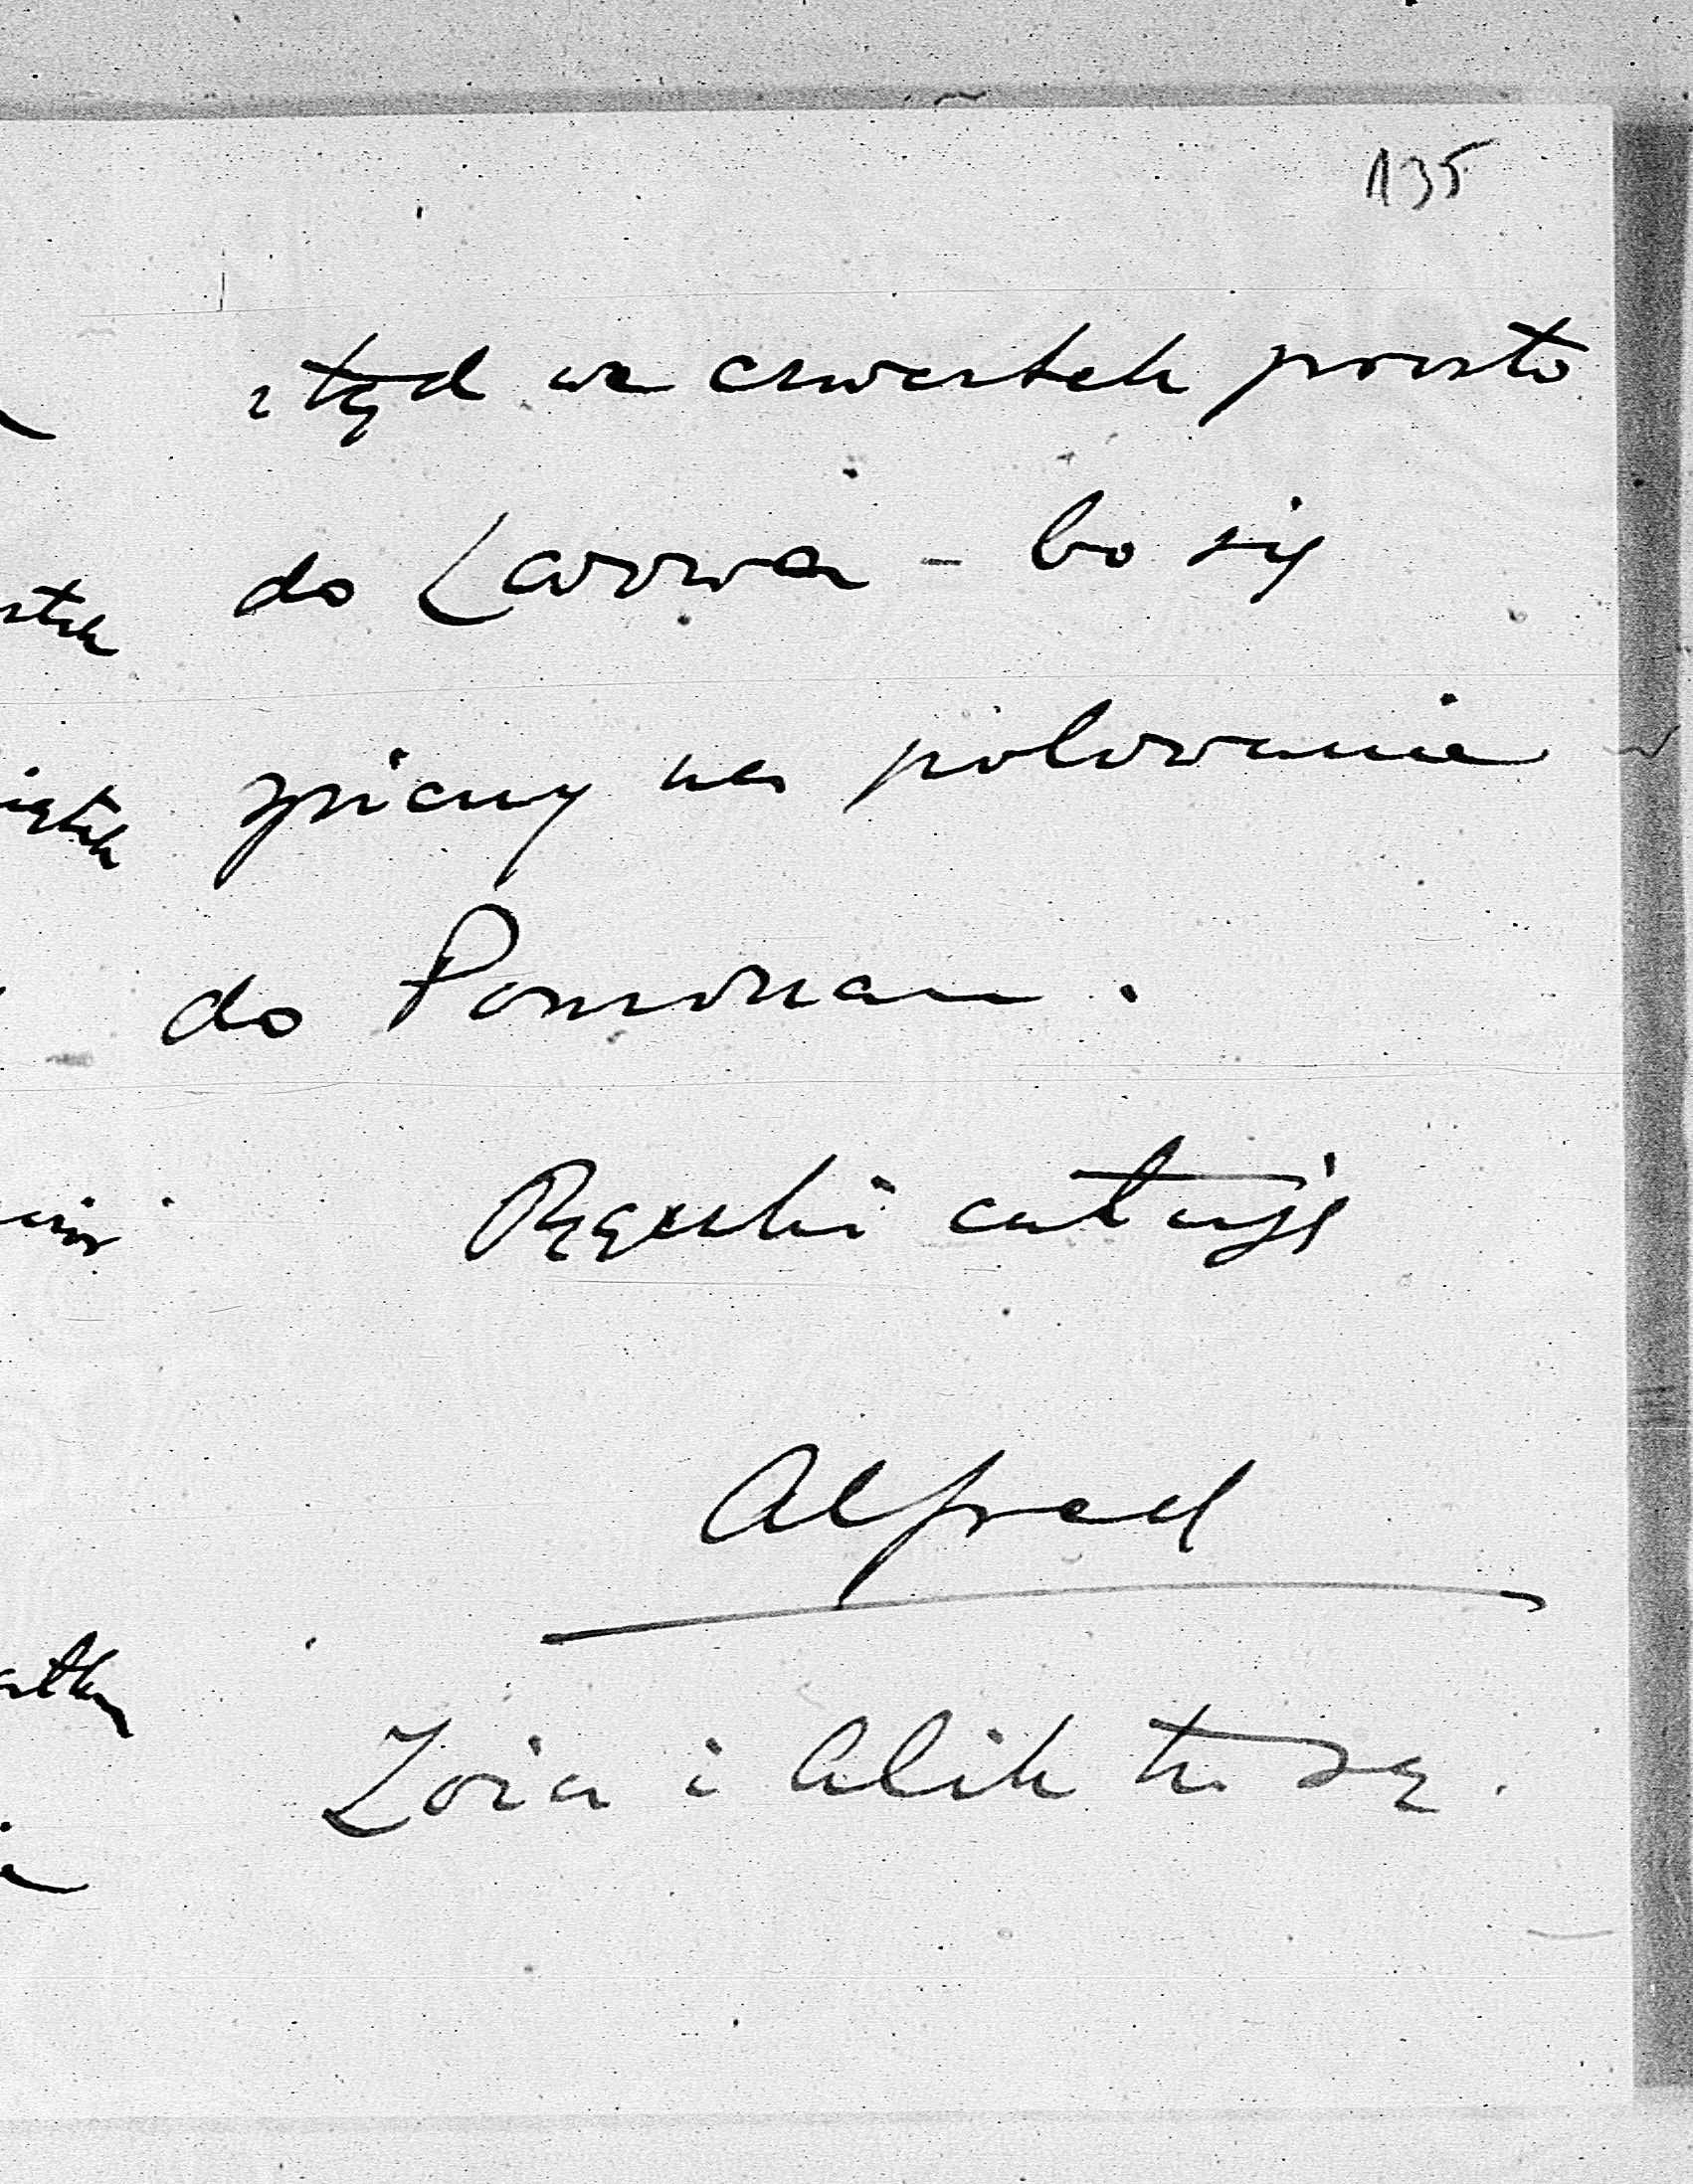 135
ztąd we czwartek prosto
do Lwowa – bo się
śpieszę na polowanie
do Pomorzan.
Rączki całuję
Alfred
Zosia i Alik tu są.